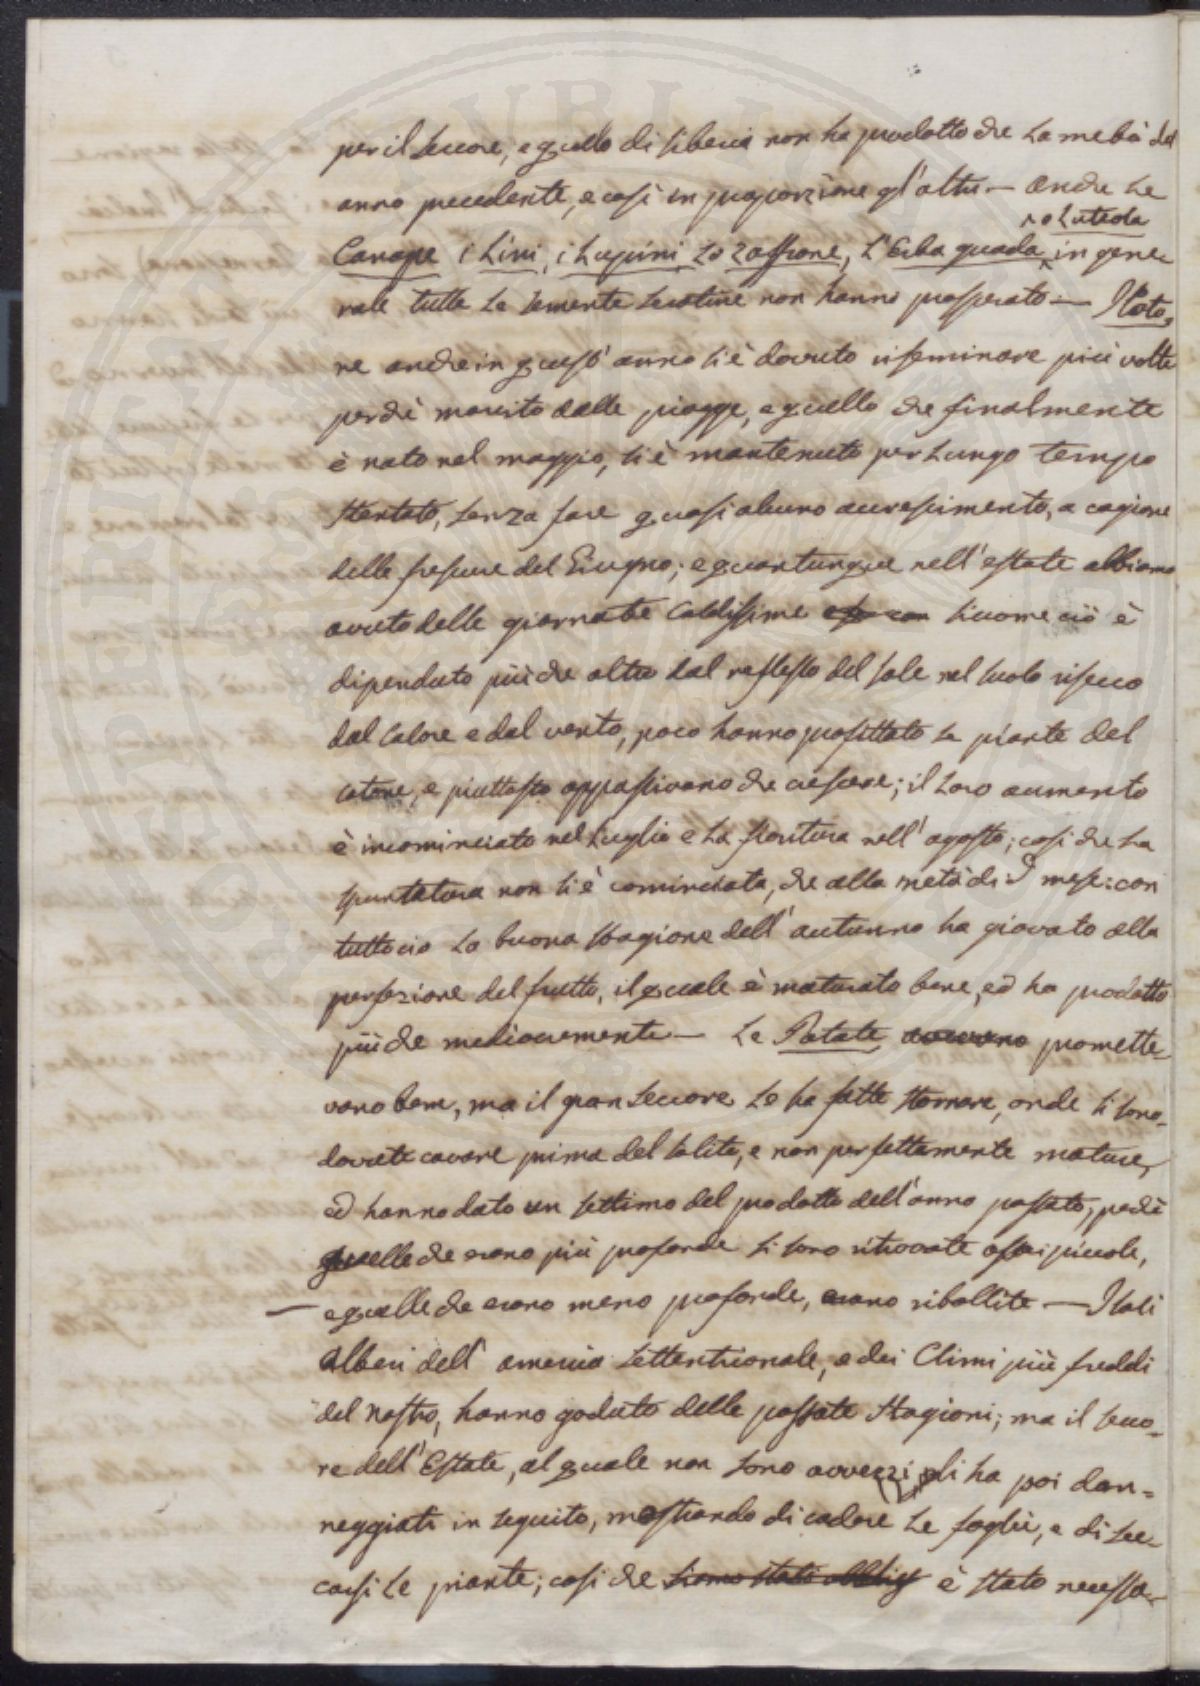 per il seccore, e quello di siberia non ha prodotto che la metà del
anno precedente, e così in proporzione gl'altri — Anche le
o Luteola
Canape i Lini, i Lupini, lo zaffrone, l'Erba guada in gene-
rale tutte le semente serotine non hanno prosperato — Il Coto-
ne anche in quest'anno si è dovuto riseminare più volte
perchè marcito dalle piogge, e quello che finalmente
è nato nel maggio, si è mantenuto per lungo tempo
stentato, senza fare quasi alcuno accrescimento, a cagione
delle frescure del Giugno; e quantunque nell'estate abbiamo
avuto delle giornate caldissime siccome ciò è
dipenduto più che altro dal reflesso del sole nel suolo risecco
dal calore e dal vento, poco hanno profittato le piante del
cotone, e piuttosto appassivano che crescere; il loro aumento
è incominciato nel Luglio e la fioritura nell'agosto; così che la
spuntatura non si è cominciata, che alla metà di d. mese: con
tutto ciò la buona stagione dell'autunno ha giovato alla
perfezione del frutto, il quale è maturato bene, ed ha prodotto
più che mediocremente — Le Patate avevano promette-
vano bene, ma il gran seccore le ha fatte stornare, onde si sono
dovute cavare prima del solito, e non perfettamente mature,
ed hanno dato un settimo del prodotto dell'anno passato, perchè
quelle che erano più profonde si sono ritrovate assai piccole,
— e quelle che erano meno profonde, erano ribollite —
Alberi dell'america settentrionale, e dei Climi più freddi
del nostro, hanno goduto delle passate stagioni; ma il secco-
re dell'Estate, al quale non sono avvezzi, gli ha poi dan-
neggiati in seguito, mostrando di cadere le foglie, e di sec-
carsi le piante; così che siamo stati obblig è stato necessa-